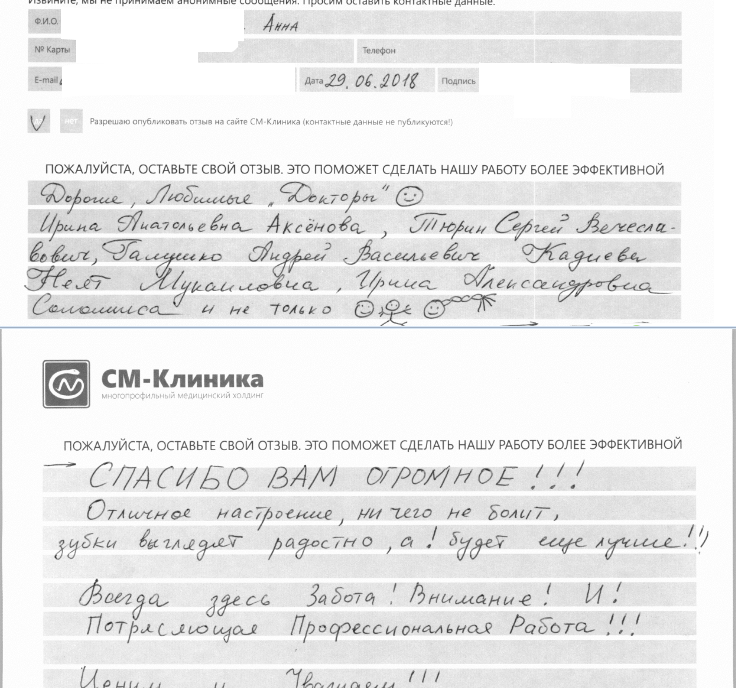 Извините, мы не принимаем анонимные сообщения. Просим оставить контактные данные.
Ф.И.О. Анна
№ Карты Телефон
E-mail Дата 29.06.2018 Подпись
нет Разрешаю опубликовать отзыв на сайте СМ-Клиника (контактные данные не публикуются!)
ПОЖАЛУЙСТА, ОСТАВЬТЕ СВОЙ ОТЗЫВ. ЭТО ПОМОЖЕТ СДЕЛАТЬ НАШУ РАБОТУ БОЛЕЕ ЭФФЕКТИВНОЙ
Дорогие, Любимые „Докторы"
Ирина Анатольевна Аксёнова, Тюрин Сергей Вечесла-
вович, Галушко Андрей Васильевич Кадиева
Неят Мукаиловна, Ирина Александровна
Соломиса и не только
СМ-Клиника
многопрофильный медицинский холдинг
ПОЖАЛУЙСТА, ОСТАВЬТЕ СВОЙ ОТЗЫВ. ЭТО ПОМОЖЕТ СДЕЛАТЬ НАШУ РАБОТУ БОЛЕЕ ЭФФЕКТИВНОЙ
СПАСИБО ВАМ ОГРОМНОЕ!!!
Отличное настроение, ничего не болит,
зубки выглядят радостно, а! будет еще лучше!!)
Всегда здесь Забота! Внимание! И!
Потрясающая Профессиональная Работа!!!
Ценим и Уважаем!!!